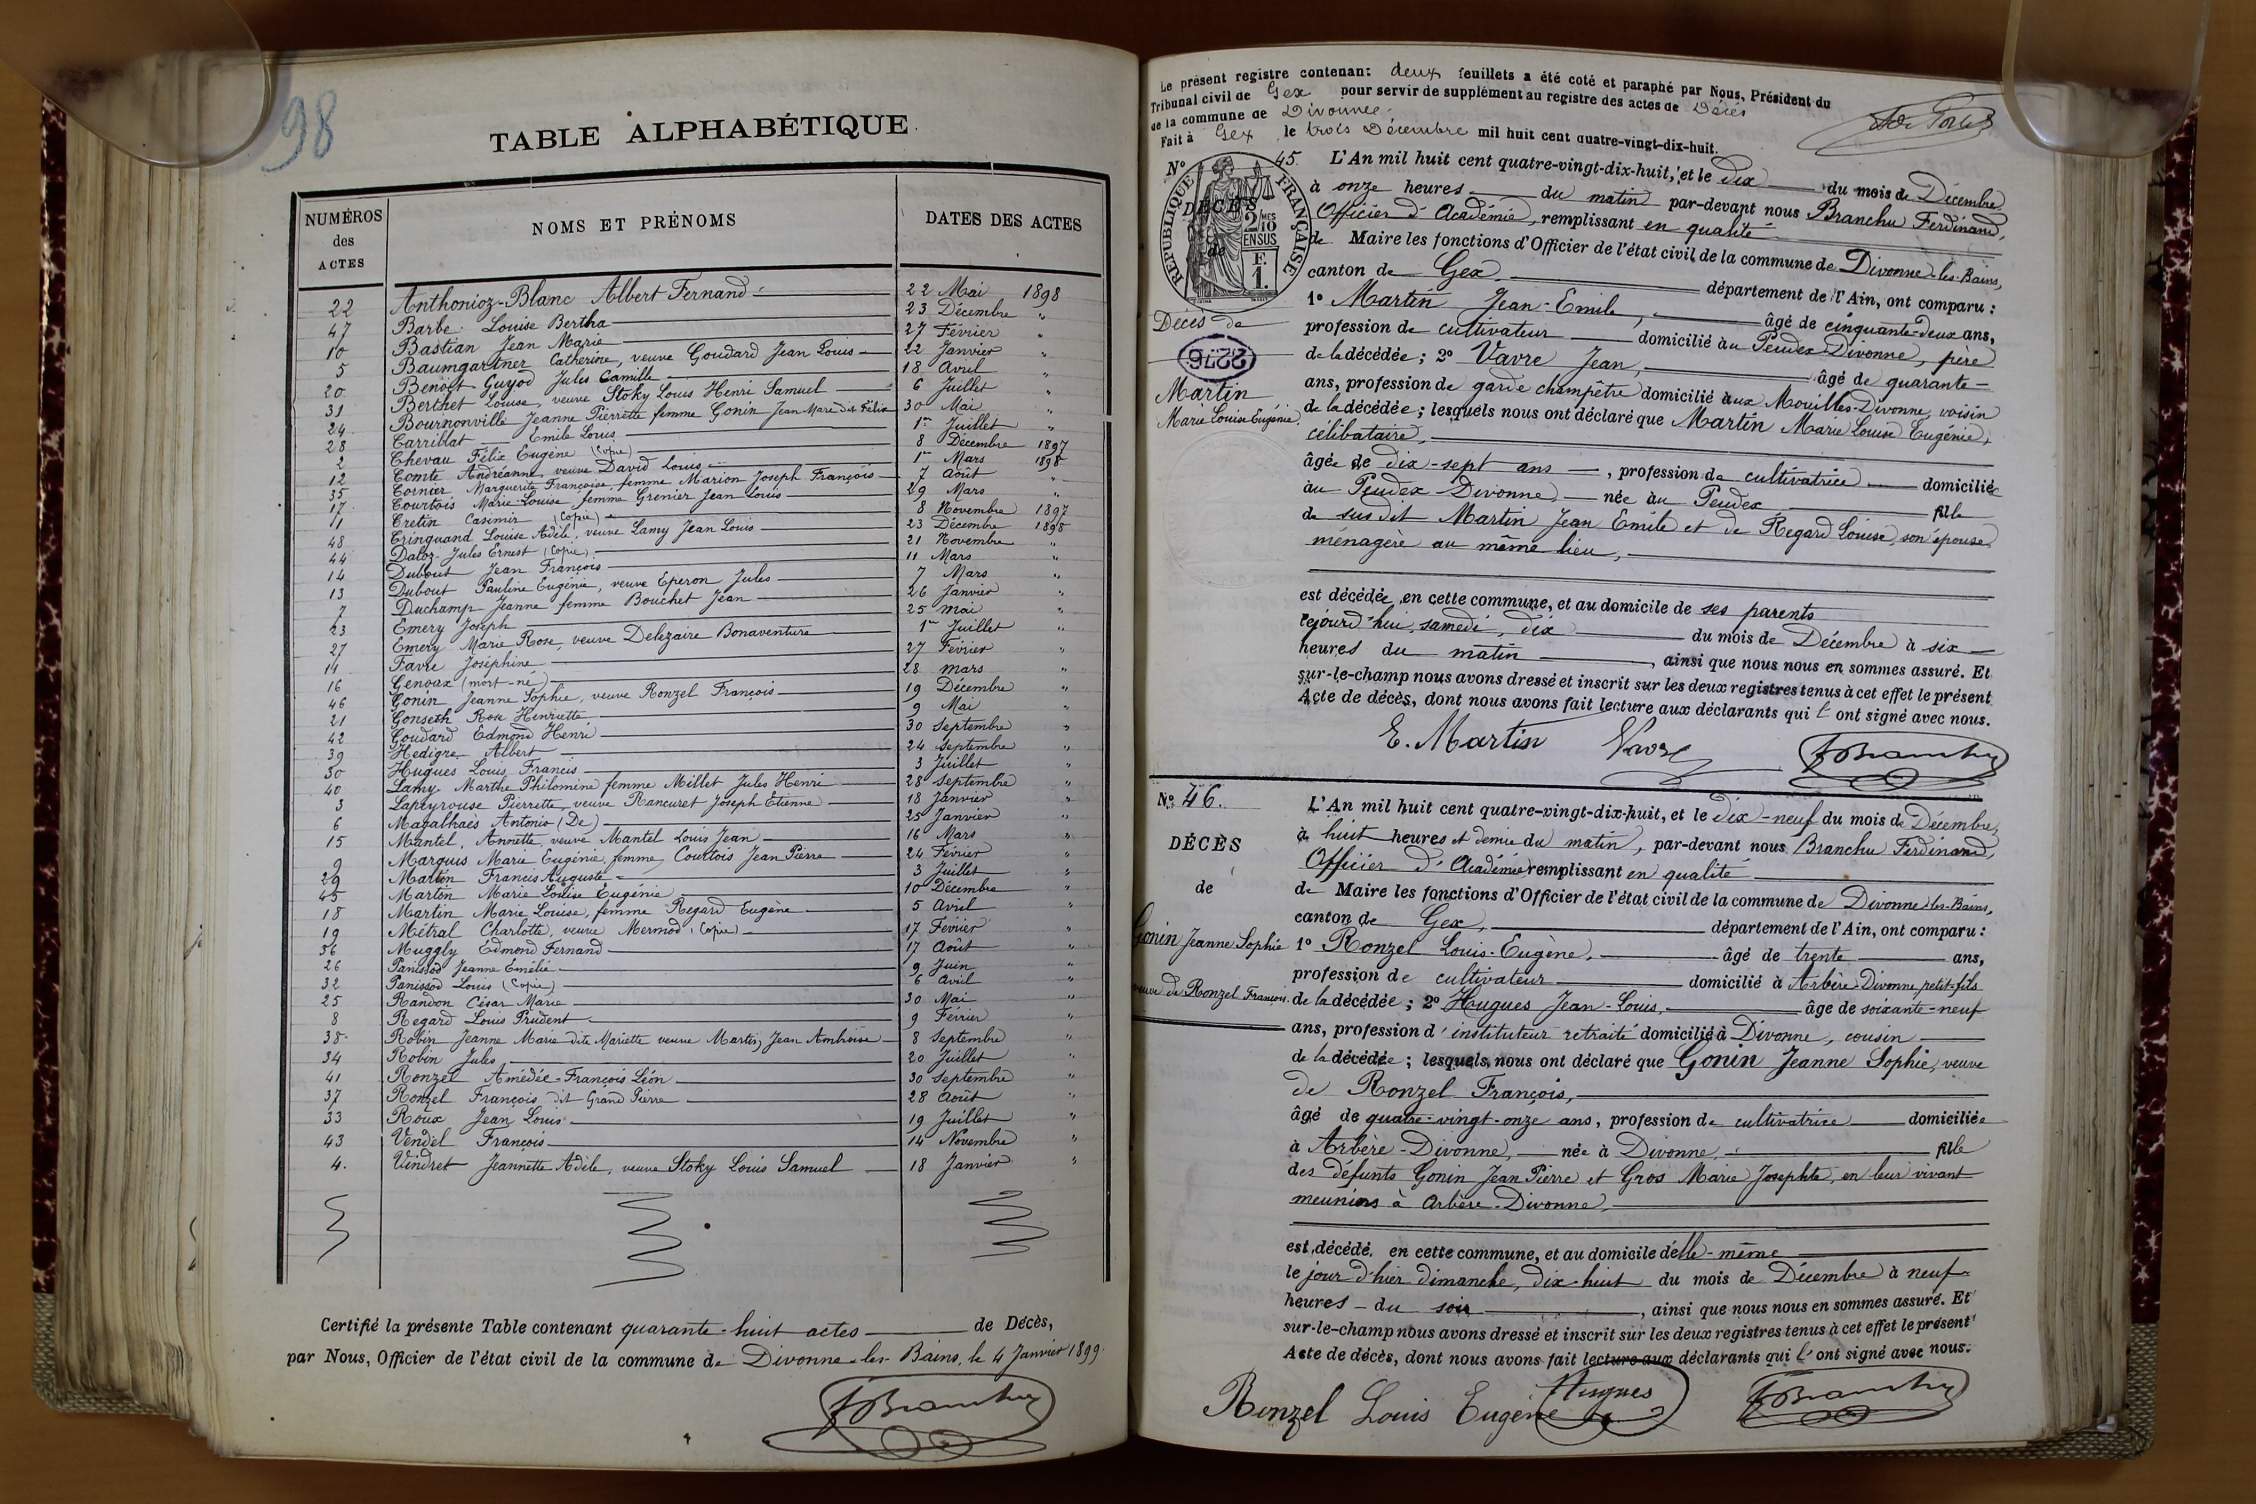 98
TABLE ALPHABÉTIQUE
NUMÉROS des ACTES
NOMS ET PRÉNOMS
DATES DES ACTES
22 Anthonioz-Blanc Albert Fernand 22 Mai 1898
47 Barbe Louise Bertha 23 Décembre "
10 Bastian Jean Marie 27 Février "
5 Baumgartner Catherine, veuve Goudard Jean Louis 22 Janvier "
20 Benoît-Guyod Jules Camille 18 Avril "
31 Berthet Louise, veuve Stoky Louis Henri Samuel 6 Juillet "
24 Bournonville Jeanne Pierrette femme Gonin Jean Marie dit Félix 30 Mai "
28 Carriblat Emile Louis 1er Juillet "
2 Chevau Félix Eugène (Copie) 8 Décembre 1897
12 Comte Andréanne, veuve David Louis 1er Mars 1898
35 Cornier Marguerite Françoise, femme Marion Joseph François 7 Août "
17 Courtois Marie-Louise, femme Grenier Jean Louis 29 Mars "
1 Cretin Casimir (Copie) 8 Novembre 1897
48 Crinquand Louise Adèle, veuve Lamy Jean Louis 23 Décembre 1898
44 Daloz Jules Ernest (Copie) 21 Novembre "
14 Dubout Jean François 11 Mars "
13 Dubout Pauline Eugénie, veuve Eperon Jules 7 Mars "
7 Duchamp Jeanne femme Bouchet Jean 26 Janvier "
23 Emery Joseph 25 Mai "
27 Emery Marie Rose, veuve Delezaire Bonaventure 1er Juillet "
11 Favre Joséphine 27 Février "
16 Genoax (mort-né) 28 Mars "
46 Gonin Jeanne Sophie, veuve Ronzel François 19 Décembre "
21 Gonseth Rose Henriette 9 Mai "
42 Goudard Edmond Henri 30 Septembre "
39 Hedigre Albert 24 Septembre "
30 Hugues Louis Francis 3 Juillet "
40 Lamy Marthe Philomène femme Millet Jules Henri 28 Septembre "
3 Lapeyrouse Pierrette, veuve Rancuret Joseph Etienne 18 Janvier "
6 Magalhaès Antonio (De) 25 Janvier "
15 Mantel, Annette, veuve Mantel Louis Jean 16 Mars "
9 Marquis Marie Eugénie, femme Courtois Jean Pierre 24 Février "
29 Martin Francis Auguste 3 Juillet "
45 Martin Marie Louise Eugénie 10 Décembre "
18 Martin Marie Louise, femme Regard Eugène 5 Avril "
19 Métral Charlotte, veuve Mermod (Copie) 17 Février "
36 Muggly Edmond Fernand 17 Août "
26 Panissod Jeanne Emélie 9 Juin "
32 Panissod Louis (Copie) 6 Avril "
25 Randon César Marie 30 Mai "
8 Regard Louis Prudent 9 Février "
38 Robin Jeanne Marie dite Mariette veuve Martin Jean Ambroise 8 Septembre "
34 Robin Jules 20 Juillet "
41 Ronzel Amédée-François Léon 30 Septembre "
37 Ronzel François dit Grand Pierre 28 Août "
33 Roux Jean Louis 19 Juillet "
43 Vendel François 14 Novembre "
4. Vindret Jeannette Adèle, veuve Stoky Louis Samuel 18 Janvier "
Certifié la présente Table contenant quarante-huit actes de Décès,
par Nous, Officier de l'état civil de la commune de Divonne-les-Bains, le 4 Janvier 1899.
F. Branchu
Le présent registre contenant deux feuillets a été coté et paraphé par Nous, Président du
Tribunal civil de Gex pour servir de supplément au registre des actes de Décès
de la commune de Divonne.
Fait à Gex, le trois Décembre mil huit cent quatre-vingt-dix-huit.
N° 45.
DÉCÈS
de
RÉPUBLIQUE FRANÇAISE
2/10 MES
EN SUS
F.
1.
Décès de
2276
Martin
Marie Louise Eugénie.
L'An mil huit cent quatre-vingt-dix-huit, et le dix du mois de Décembre
à onze heures du matin par-devant nous Branchu Ferdinand,
Officier d'Académie, remplissant en qualité
de Maire les fonctions d'Officier de l'état civil de la commune de Divonne-les-Bains,
canton de Gex, département de l'Ain, ont comparu :
1° Martin Jean-Emile, âgé de cinquante-deux ans,
profession de cultivateur domicilié au Peudex-Divonne, père
de la décédée ; 2° Vavre Jean, âgé de quarante-
ans, profession de garde champêtre domicilié aux Mouilles-Divonne, voisin
de la décédée ; lesquels nous ont déclaré que Martin Marie Louise Eugénie,
célibataire,
âgée de dix-sept ans, profession de cultivatrice domiciliée
au Peudex-Divonne née au Peudex fille
de sus dit Martin Jean Emile et de Regard Louise, son épouse,
ménagère au même lieu,
est décédée en cette commune, et au domicile de ses parents
cejourd'hui, samedi, dix du mois de Décembre à six
heures du matin, ainsi que nous nous en sommes assuré. Et
sur-le-champ nous avons dressé et inscrit sur les deux registres tenus à cet effet le présent
Acte de décès, dont nous avons fait lecture aux déclarants qui l'ont signé avec nous.
E. Martin Vavre F. Branchu
N° 46.
DÉCÈS
de
Gonin Jeanne Sophie
veuve de Ronzel François.
L'An mil huit cent quatre-vingt-dix-huit, et le dix-neuf du mois de Décembre,
à huit heures et demie du matin, par-devant nous Branchu Ferdinand,
Officier d'Académie remplissant en qualité
de Maire les fonctions d'Officier de l'état civil de la commune de Divonne-les-Bains,
canton de Gex, département de l'Ain, ont comparu :
1° Ronzel Louis-Eugène, âgé de trente ans,
profession de cultivateur domicilié à Arbère-Divonne, petit-fils
de la décédée ; 2° Hugues Jean-Louis, âgé de soixante-neuf
ans, profession d'instituteur retraité domicilié à Divonne, cousin
de la décédée ; lesquels nous ont déclaré que Gonin Jeanne Sophie, veuve
de Ronzel François,
âgé de quatre-vingt-onze ans, profession de cultivatrice domiciliée
à Arbère-Divonne, née à Divonne, fille
des défunts Gonin Jean Pierre et Gros Marie Josephte, en leur vivant
meuniers à Arbère-Divonne,
est décédé, en cette commune, et au domicile d'elle-même
le jour d'hier dimanche, dix-huit du mois de Décembre à neuf
heures du soir, ainsi que nous nous en sommes assuré. Et
sur-le-champ nous avons dressé et inscrit sur les deux registres tenus à cet effet le présent
Acte de décès, dont nous avons fait lecture aux déclarants qui l'ont signé avec nous.
Ronzel Louis Eugène Hugues F. Branchu